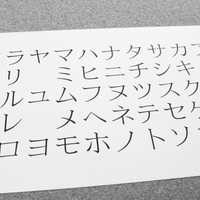 ラヤマハナタサカア
リ　ミヒニチシキ
ルユムフヌツスク
レ　メヘネテセケ
ロヨモホノトソ